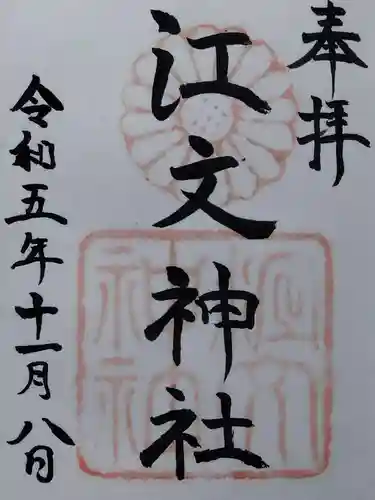 奉拝
江文神社
令和五年十一月八日